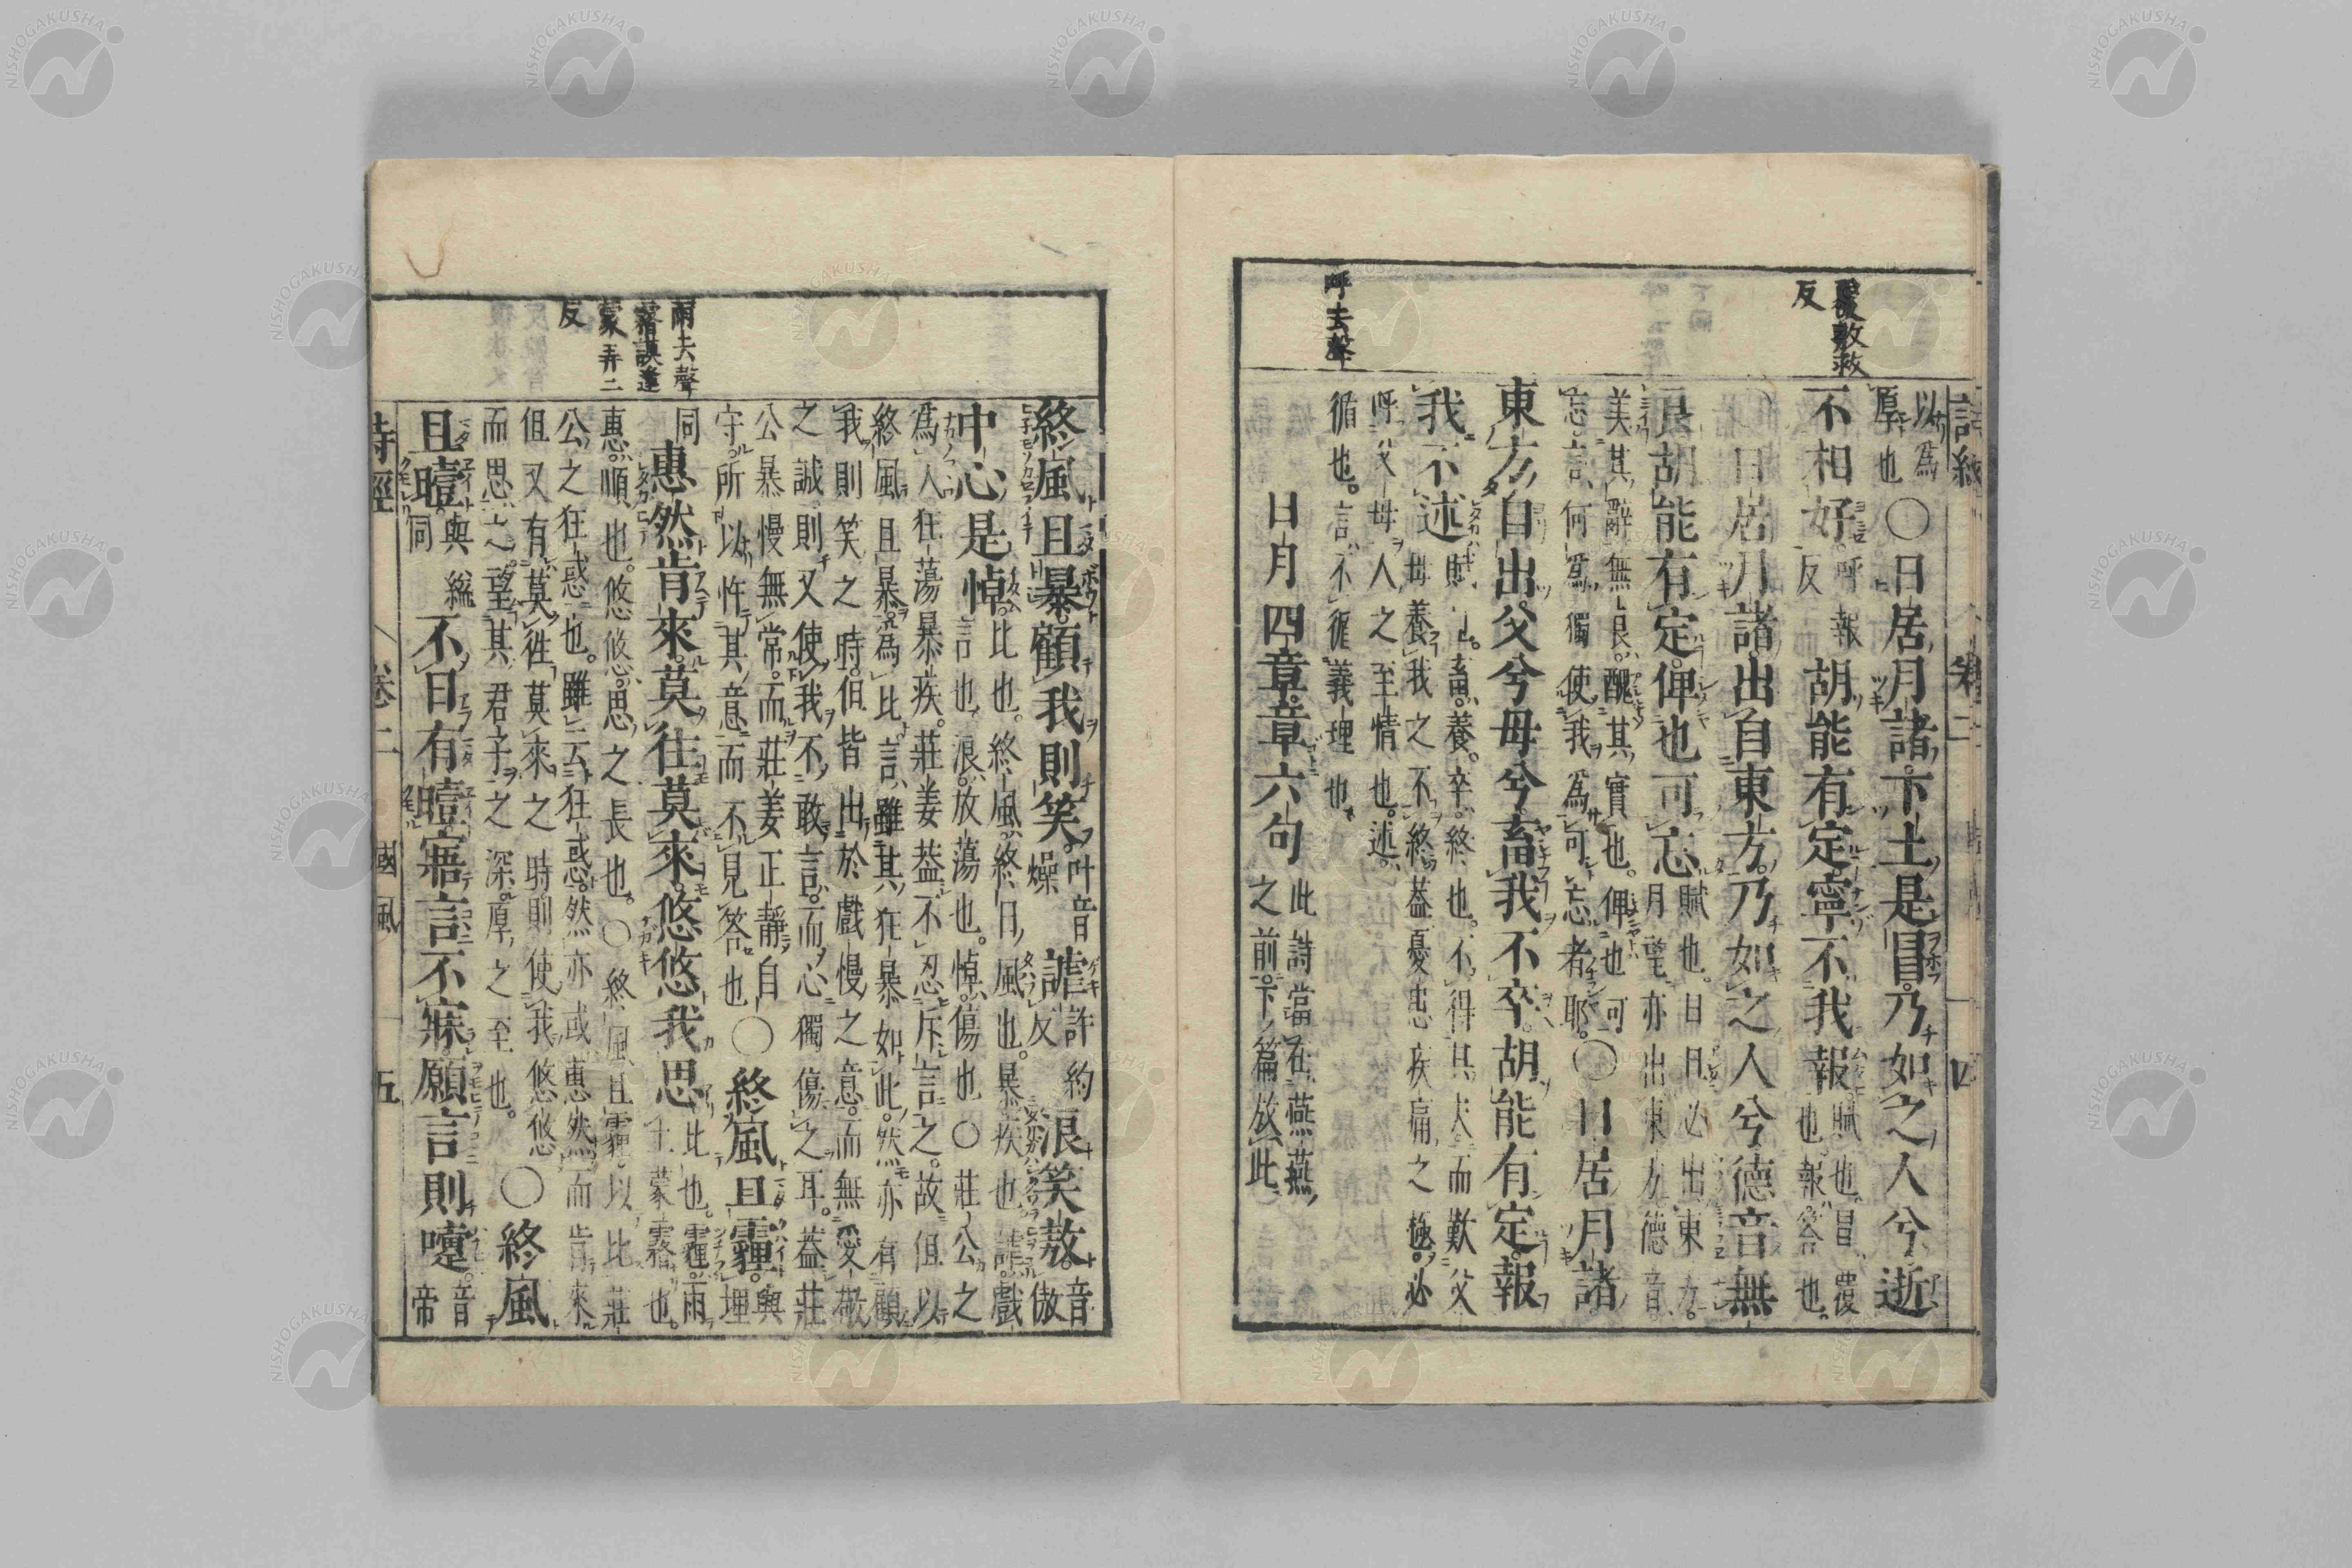 覆敷救
反
呼去聲
詩經 卷二 四
以爲
厚也
○日居月諸下土是冒乃如之人兮逝
不相好
呼報
反
胡能有定寧不我報
賦也冒覆
也報答也
○日居月諸出自東方乃如之人兮德音無
良胡能有定俾也可忘
賦也日旦必出東方
月望亦出東方德音
美其辭無良醜其實也俾也可
忘言何爲獨使我爲可忘者耶
○日居月諸
東方自出父兮母兮畜我不卒胡能有定報
我不述
賦也畜養卒終也不得其夫而歎父
母養我之不終蓋憂患疾痛之極必
呼父母人之至情也述
循也言不循義理也
日月四章章六句
此詩當在燕燕
之前下篇放此
雨去聲
霿謨蓬
蒙弄二
反
終風且暴顧我則笑
叶音
燥
謔
許約
反
浪笑敖
音
傲
中心是悼
比也終風終日風也暴疾也謔戲
言也浪放蕩也悼傷也○莊公之
爲人狂蕩暴疾莊姜蓋不忍斥言之故但以
終風且暴爲比言雖其狂暴如此然亦有顧
我則笑之時但皆出於戲慢之意而無愛敬
之誠則又使我不敢言而心獨傷之耳蓋莊
公暴慢無常而莊姜正靜自
守所以忤其意而不見答也
○終風且霾
與
埋
同
惠然肯來莫往莫來悠悠我思
比也霾雨
土蒙霧也
惠順也悠悠思之長也○終風且霾以比莊
公之狂惑也雖云狂惑然亦或惠然而肯來
但又有莫往莫來之時則使我悠悠
而思之望其君子之深厚之至也
○終風
且曀
與
同
不日有曀寤言不寐願言則嚏
音
帝
詩經 卷二 國風 五